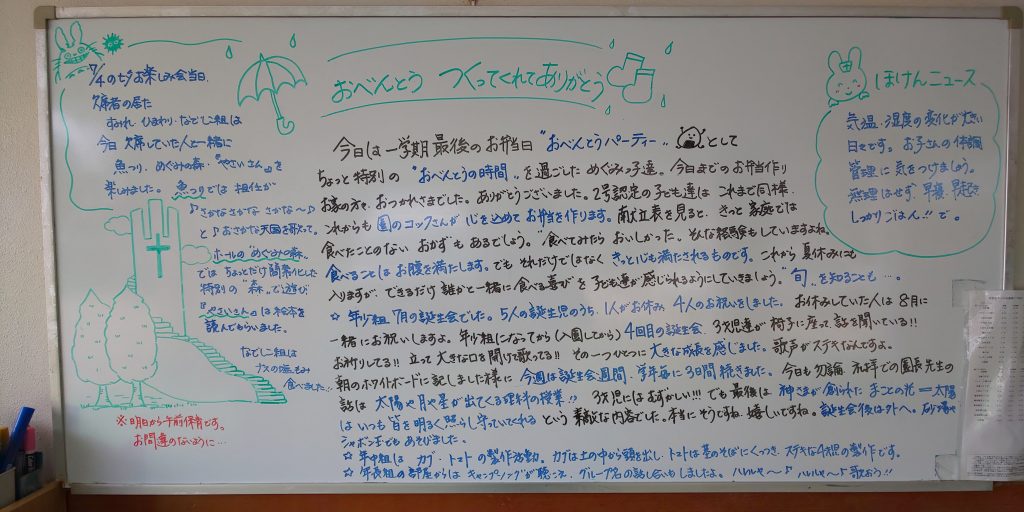 7/4の七夕お楽しみ会当日、
欠席者の居た
すみれ・ひまわり・なでしこ組は
今日欠席していた人と一緒に
魚つり、めぐみの森・"やさいさん"を
楽しみました。魚つりでは担任が
♪さかなさかな さかな〜♪
と♪おさかな天国を歌って。
ホールの"めぐみの森"
では ちょっとだけ簡素化した
特別の"森"で遊び
"やさいさん"は絵本を
読んでもらいました。
なでしこ組は
ナスの塩もみ
食べました!!
※明日から午前保育です。
お間違のないように…
おべんとう つくってくれてありがとう
今日は一学期最後のお弁当日"おべんとうパーティー"として
ちょっと特別の"おべんとうの時間"を過ごした めぐみっ子達。今日までのお弁当作り
お家の方々、おつかれさまでした。ありがとうございました。2号認定の子ども達は これまで同様、
これからも園のコックさんが心を込めてお弁当を作ります。献立表を見ると、きっと家庭では
食べたことのない"おかず"もあるでしょう。"食べてみたら おいしかった"そんな経験もしていますよね。
食べることはお腹を満たします。でも それだけでなく きっと心も満たされるものです。これから夏休みにも
入りますが、できるだけ誰かと一緒に"食べる喜び"を子ども達が感じられるようにしていきましょう。"旬"を知ることも…。
☆年少組7月の誕生会でした。5人の誕生児のうち、1人がお休み 4人のお祝いをしました。お休みしていた人は8月に
一緒にお祝いしますよ。年少組になってから(入園してから)4回目の誕生会、3才児達が椅子に座って話を聞いている!!
お祈りしてる!! 立って大きな口を開けて歌ってる!! その一つひとつに大きな成長を感じました。歌声がステキなんですよ。
朝のホワイトボードに記しました様に 今週は誕生会週間、学年毎に3日間続きました。今日も 園長先生の
話は 太陽や月や星が出てくる理科の授業!! 3才児にはむずかしい!!! でも最後は 神さまが創られた まことの光=太陽
は いつも皆を明るく照らし守っていてくれる という素敵な内容でした。本当にそうですね。嬉しいですね。誕生会後は外へ。砂場や
シャボン玉でもあそびました。
☆年中組は カブ・トマトの製作活動。カブは土の中から頭を出し、トマトは茎のそばにくっつき、ステキな4才児の製作です。
☆年長組の部屋からは キャンプソングが聴こえ、グループ名の話し合いもしましたよ。ハレルヤ〜♪ ハレルヤ〜♪ 歌おう!!
ほけんニュース
気温・湿度の変化が大きい
日々です。お子さんの体調
管理に気をつけましょう。
無理はせず、早寝・早起き
しっかりごはん!!で。